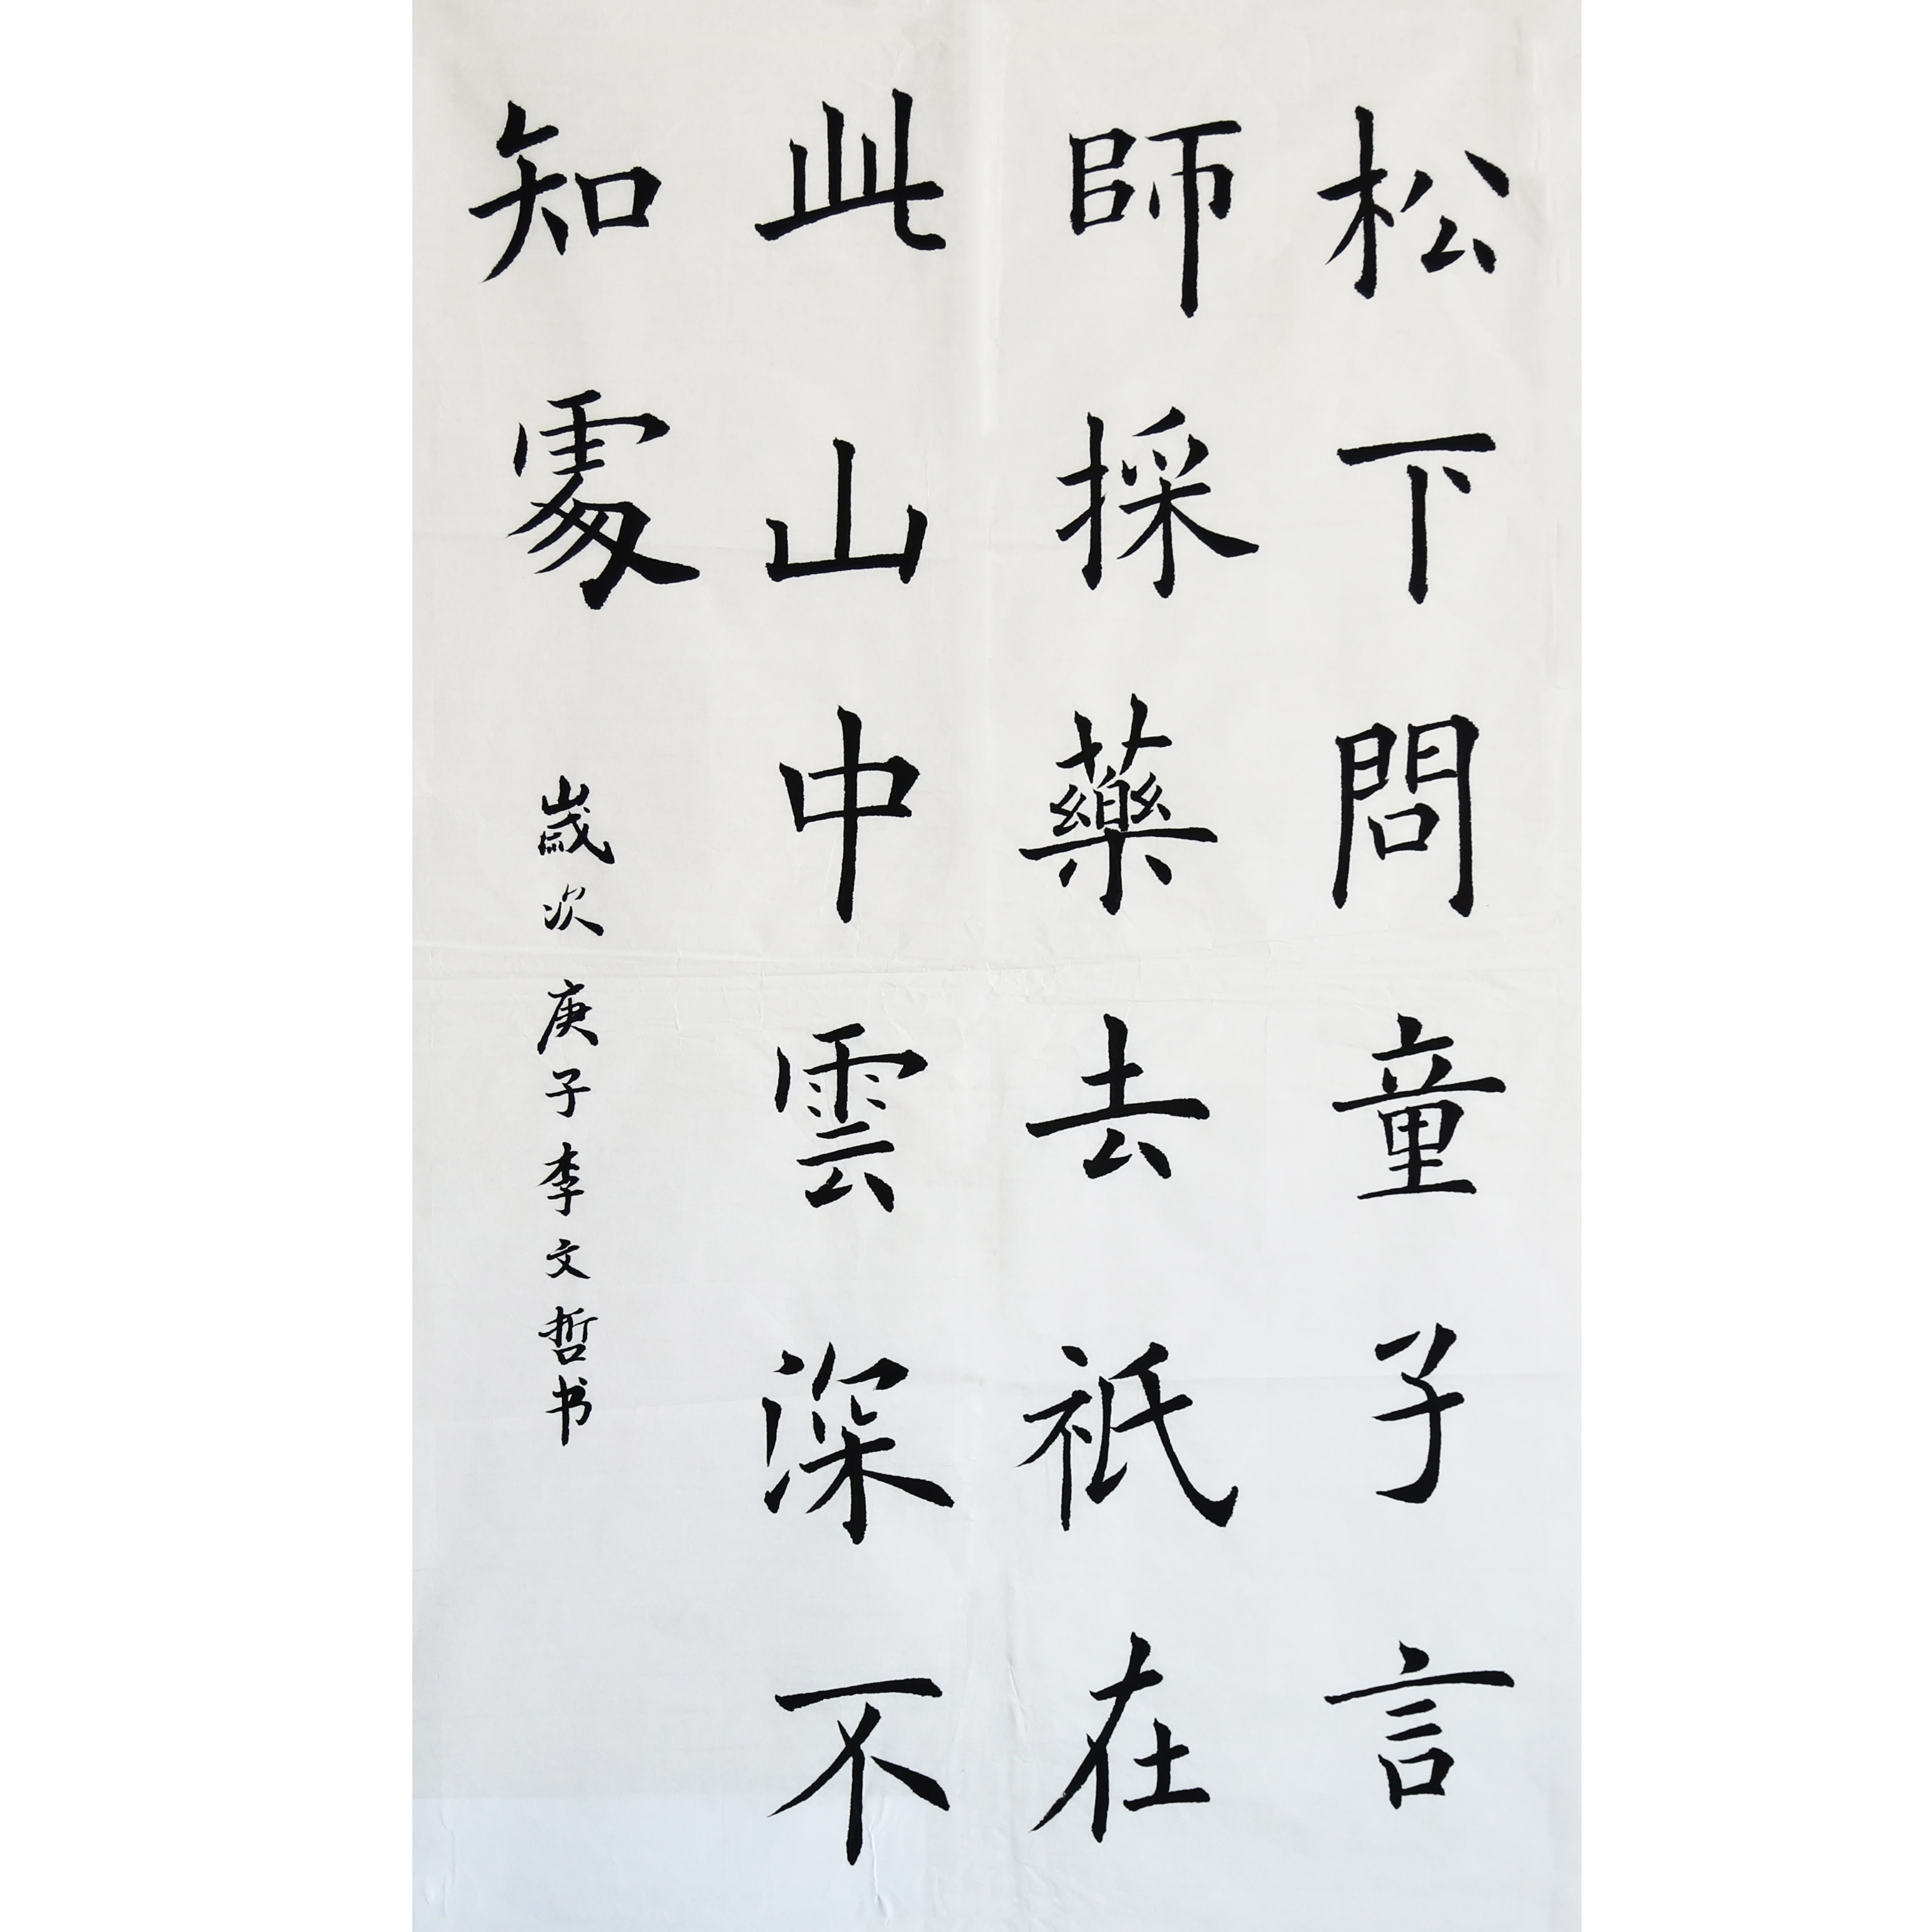 松下問童子言
師採藥去祇在
此山中雲深不
知處
歲次庚子李文哲书